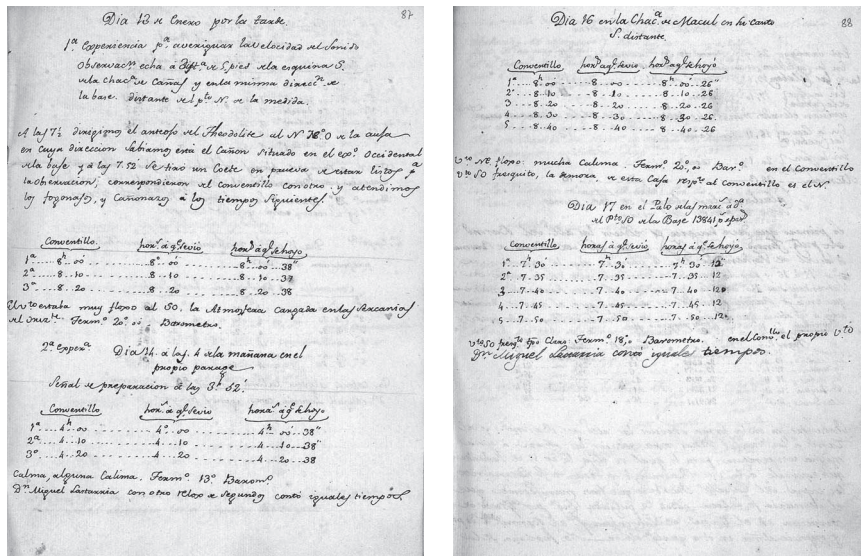 87
Dia 13 de Enero por la tarde.
1ª Experiencia pª averiguar la velocidad del Sonido
Observacn echa á de 5 pies de la esquina S.
de la Chacª de Cañas y en la misma direccn de
la base. distante del pto N. de la medida.
A las 7½ dirigimos el anteojo del Theodolite al N 78°O de la aguja
en cuya direccion sabiamos está el Cañon situado en el exmo. Occidental
de la base y á las 7.52 se tiro un Coete en prueva de estar listos pª
la observacion, correspondieron del conventillo con otro. y atendimos
los fogonasos, y cañonazos á los tiempos siguientes
Conventillo. horas. á q. se vio horas á q. se hoyo
1ª .... 8h .. 00' ........ 8° .. 00' ........ 8h .. 00' .. 38"
2ª .... 8 .. 10 ........ 8 .. 10 ........ 8 .. 10 .. 37
3ª .... 8 .. 20 ........ 8 .. 20 ........ 8 .. 20 .. 38
El vto estaba muy flojo al SO. la Atmosfera cargada en las sercanias
del orizte. Termo. 20°. 00 Barometro.
2ª Experª Dia 14. á las 4 de la mañana en el
propio parage
Señal de preparacion á las 3h 52'
Conventillo horas. á q. se vio horas. á q. se hoyo
1ª .... 4h .. 00 ........ 4° .. 00 ........ 4h .. 00' .. 38"
2ª .... 4 .. 10 ........ 4 .. 10 ........ 4 .. 10 .. 38"
3ª .... 4 .. 20 ........ 4 .. 20 ........ 4 .. 20 .. 38
Calma, alguna Calima. Termo. 13° Baromo.
Dn. Miguel Lastarria con otro relox de segundos contó iguales tiempos
88
Dia 16 en la Chacª. de Macul en su canto
S. distante
Conventillo horas á q. se vio horas á q. se hoyo
1ª .. 8h .. 00' ...... 8 .. 00' ...... 8h .. 00' .. 26"
2ª .. 8 .. 10 ...... 8 .. 10 ...... 8 .. 10 .. 26
3 .. 8 .. 20 ...... 8 .. 20 ...... 8 .. 20 .. 26
4 .. 8 .. 30 ...... 8 .. 30 ...... 8 .. 30 .. 26
5 .. 8 .. 40 ...... 8 .. 40 ...... 8 .. 40 .. 26
vto NE flojo. mucha Calima. Termo. 20°,00 Baro. en el Conventillo
vto SO fresquito, la demora de esta Casa respto al conventillo es el N.
Dia 17 en el Palo de las marcs
del Pto SO de la Base 13841 ps
Conventillo horas á q. se vio horas á q. se hoyo
1ª .. 7h .. 30' ...... 7h .. 30' ...... 7h .. 30' .. 12"
2ª .. 7 .. 35 ...... 7 .. 35 ...... 7 .. 35 .. 12
3 .. 7 .. 40 ...... 7 .. 40 ...... 7 .. 40 .. 12
4 .. 7 .. 45 ...... 7 .. 45 ...... 7 .. 45 .. 12
5 .. 7 .. 50 ...... 7 .. 50 ...... 7 .. 50 .. 12
vto SO fresqto tpo Claro. Termo. 18°,0 Barometro. en el Conllo el propio vto
Dn. Miguel Lastarria contó iguales tiempos.